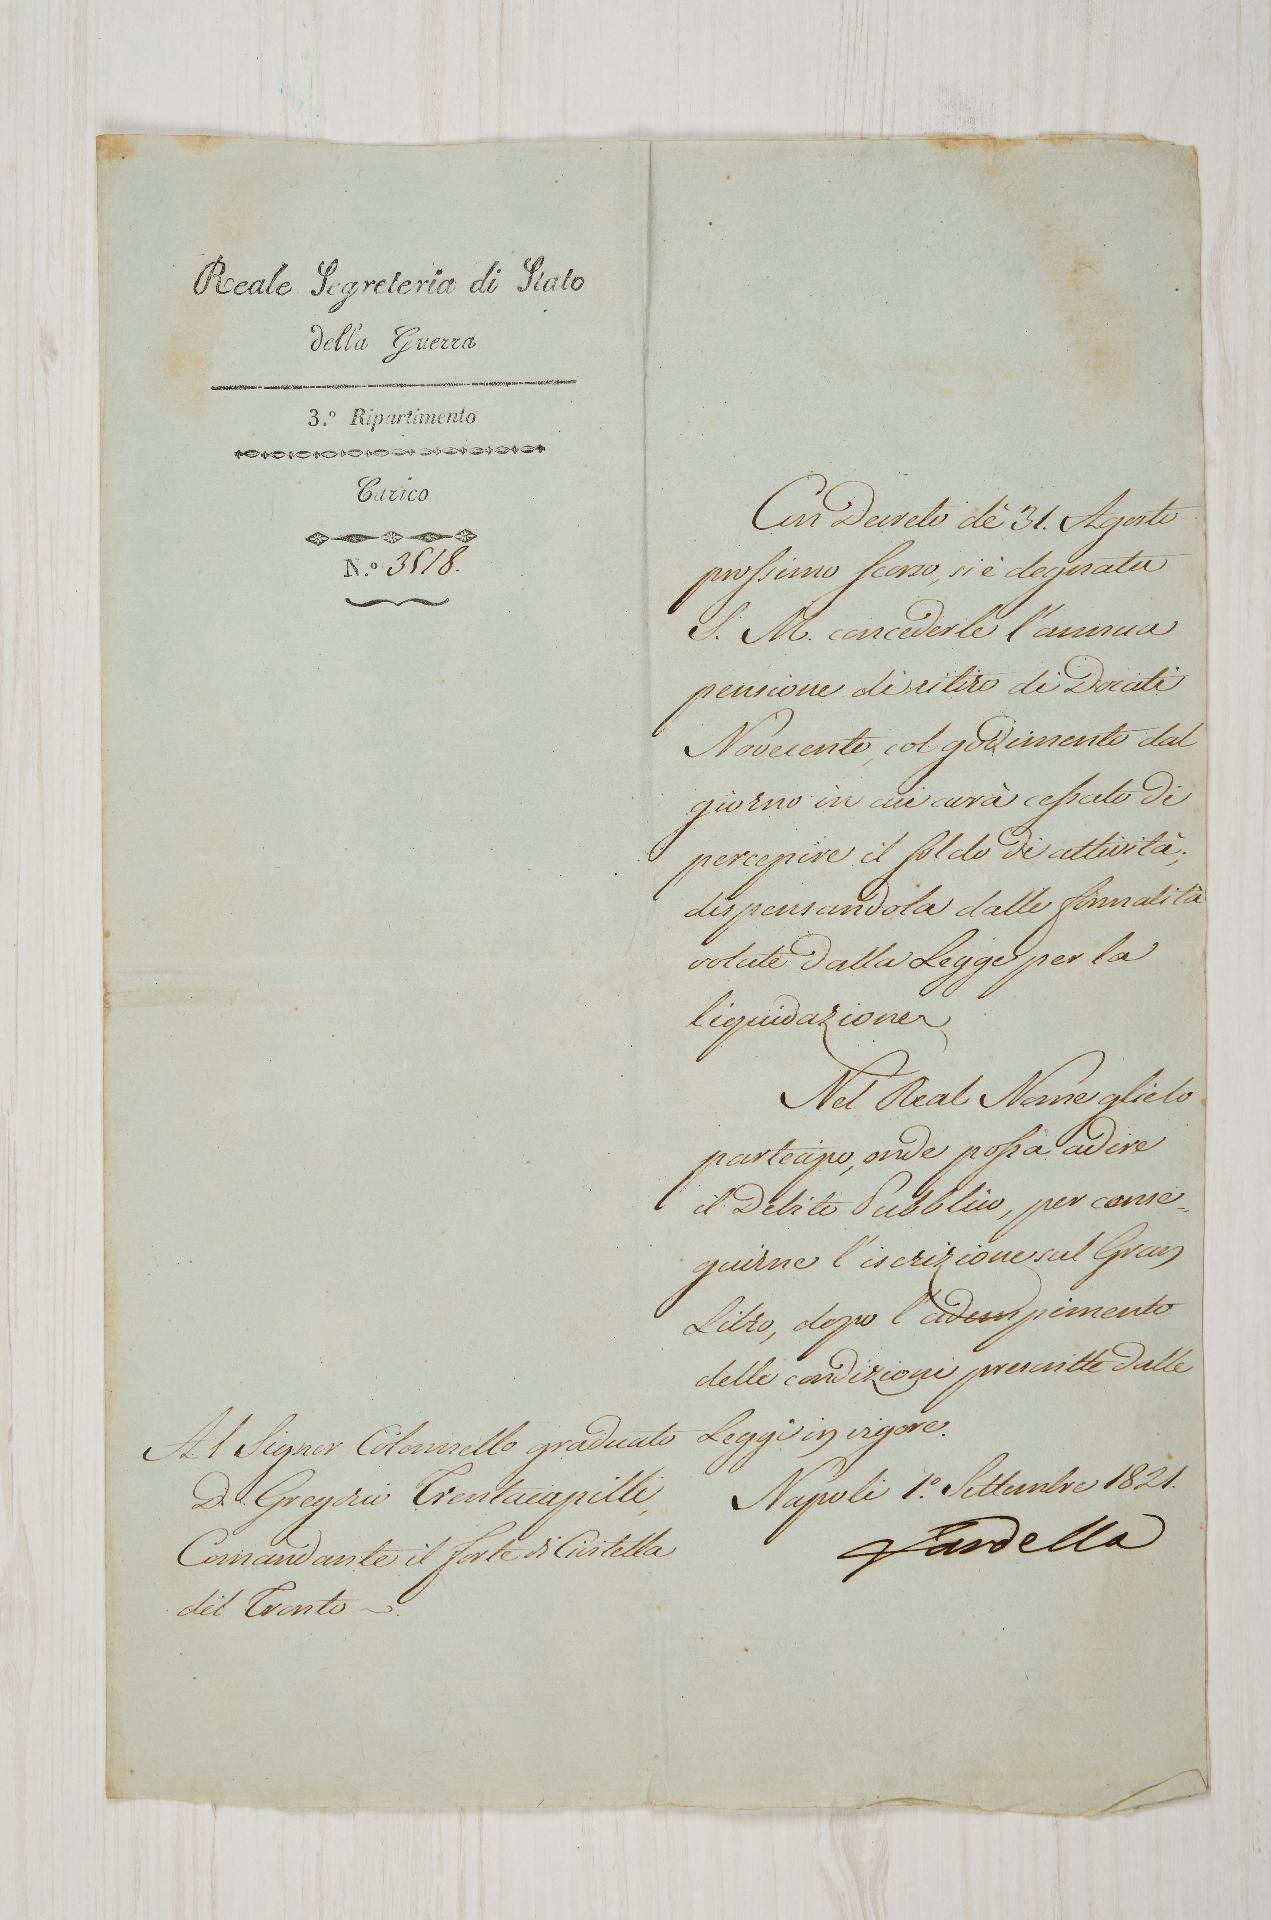 Reale Segreteria di Stato
della Guerra
3.º Ripartimento
Carico
N.º 3518.
Con Decreto de' 31. Agosto
prossimo scorso, si è degnata
S. M. concederle l'annua
pensione di ritiro di Docati
Novecento, col godimento dal
giorno in cui avrà cessato di
percepire il soldo di attività;
dispensandola dalle formalità
volute dalla Legge per la
liquidazione
Nel Real Nome glielo
partecipo, onde possa adire
il Debito Pubblico, per conse-
guirne l'iscrizione sul Gran
Libro, dopo l'adempimento
delle condizioni prescritte dalle
Leggi in vigore.
Napoli 1.º Settembre 1821.
Fardella
Al Signor Colonnello graduato
D. Gregorio Trentacapilli,
Comandante il forte di Civitella
del Tronto